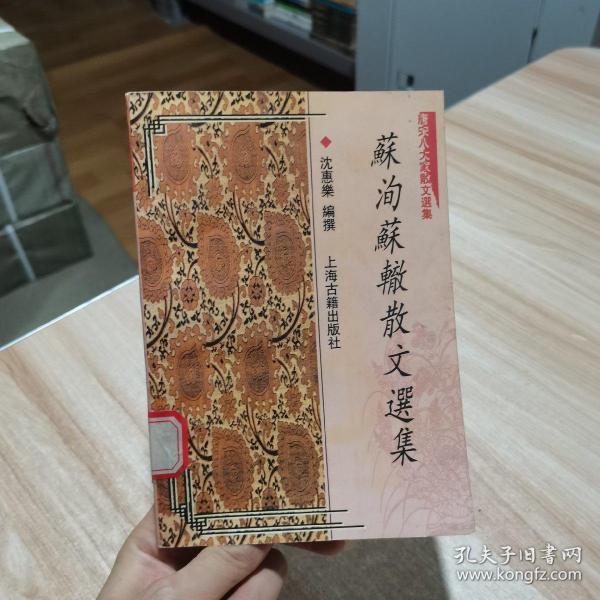 唐宋八大家散文選集
蘇洵蘇轍散文選集
沈惠樂 編撰
上海古籍出版社
孔夫子旧书网
www.kongfz.com